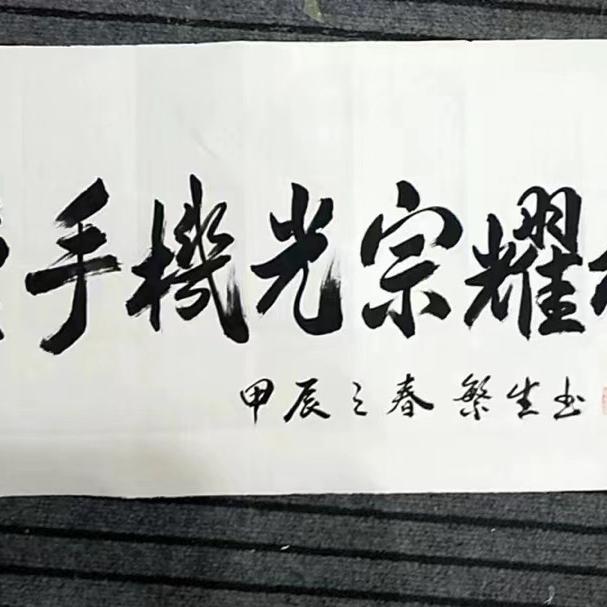 手機光宗耀
甲辰之春 繁生书